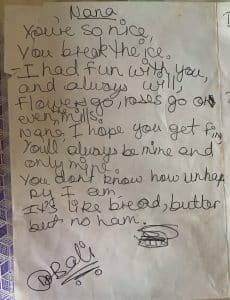 Nana
You're so nice,
You break the ice.
I had fun with you,
and always will,
flowers go, roses go or
even mills
Nana, I hope you get fi
You'll always be mine and
only mine.
You don't know how unhap
py I am.
It's like bread, butter
but no ham.
Bali